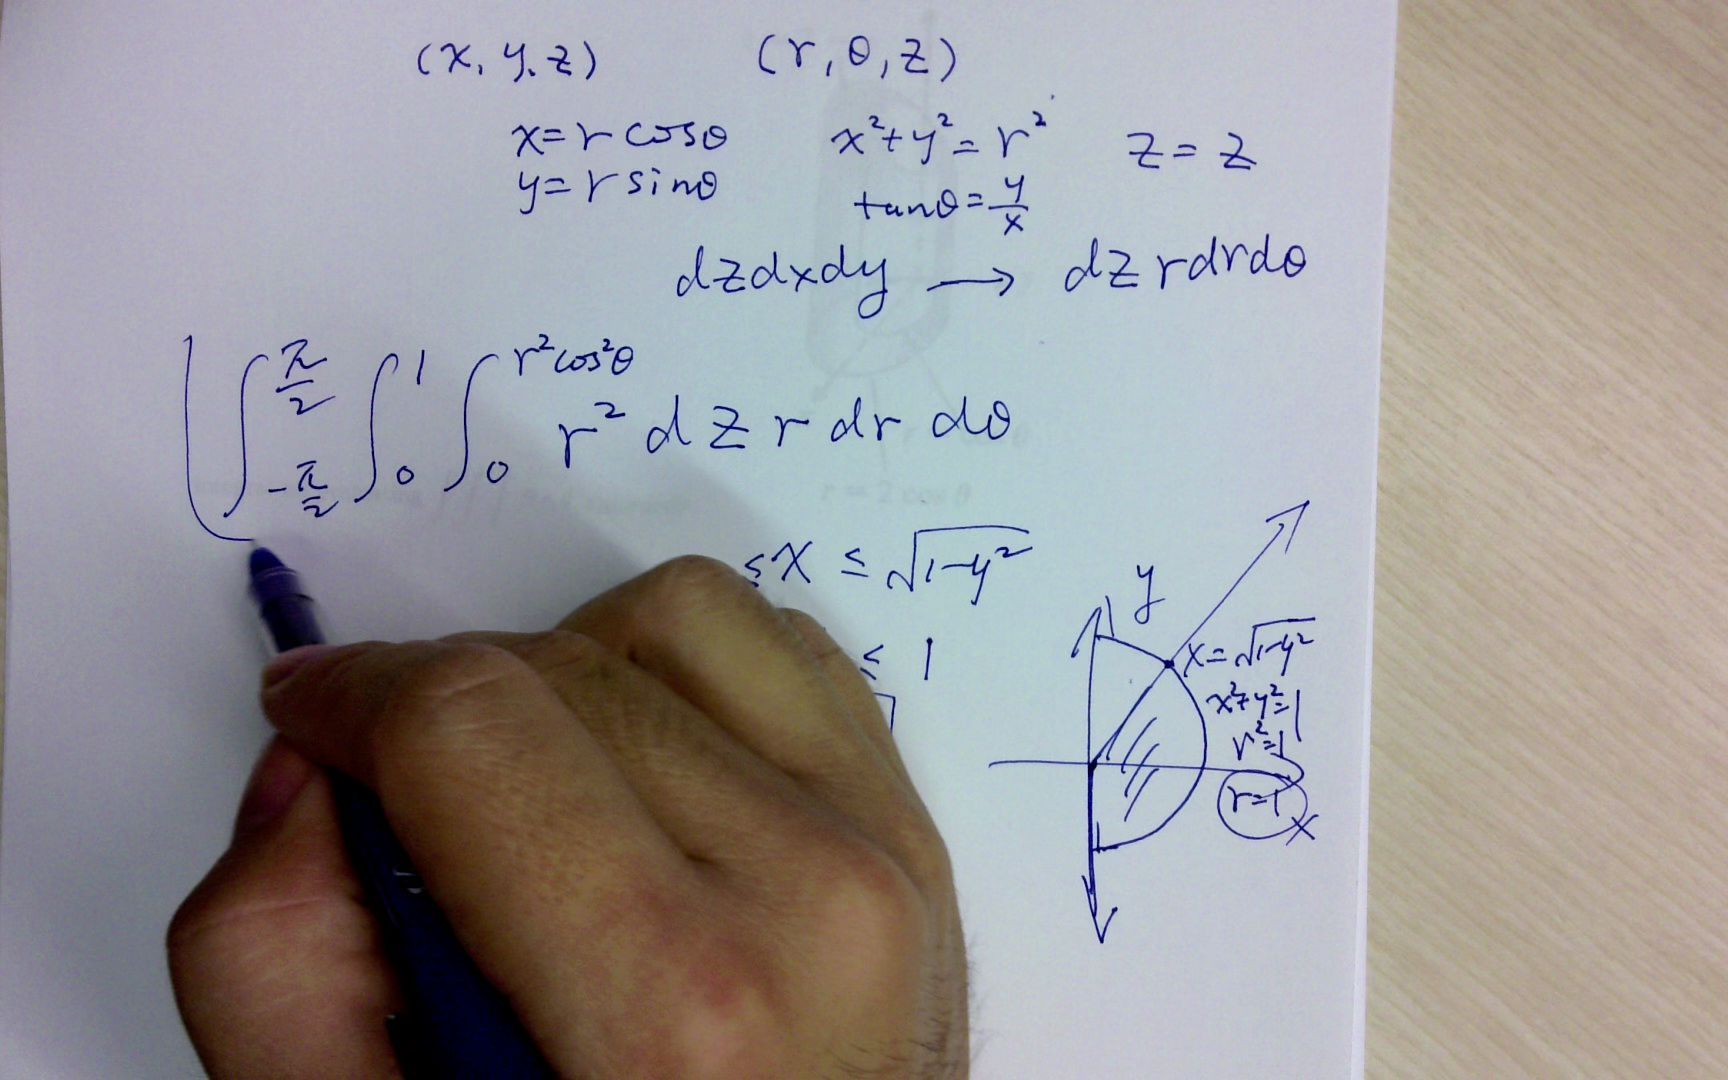 (x, y, z) (r, θ, z)
x = r cosθ x²+y² = r² z = z
y = r sinθ tanθ = y/x
dzdxdy → dz rdrdθ
∫_{-π/2}^{π/2} ∫_0^1 ∫_0^{r²cos²θ} r² dz r dr dθ
≤ x ≤ √(1-y²)
≤ 1
y
1
x = √(1-y²)
x²+y²=1
r²=1
r=1
x
r = 2 cos θ